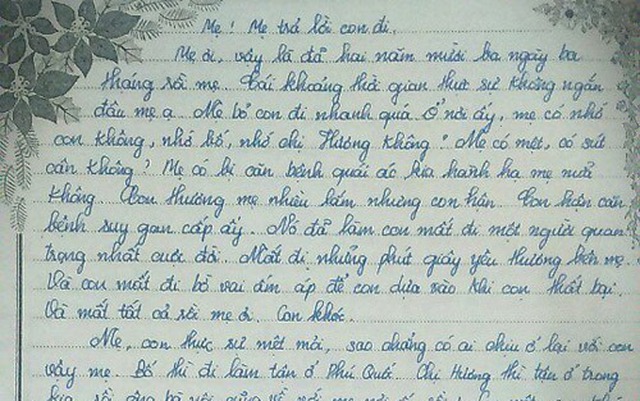 Mẹ! Mẹ trả lời con đi.
Mẹ ơi, vậy là đã hai năm mười ba ngày ba
tháng rồi mẹ. Cái khoảng thời gian thực sự không ngắn
đâu mẹ ạ. Mẹ bỏ con đi nhanh quá. Ở nơi ấy, mẹ có nhớ
con không, nhớ bố, nhớ chị Hương không? Mẹ có mệt, có sút
cân không? Mẹ có bị căn bệnh quái ác kia hành hạ mẹ nữa
không. Con thương mẹ nhiều lắm nhưng con hận. Con hận căn
bệnh suy gan cấp ấy. Nó đã làm con mất đi một người quan
trọng nhất cuộc đời. Mất đi những phút giây yêu thương bên mẹ.
Và con mất đi bờ vai ấm áp để con dựa vào khi con thất bại.
Và mất tất cả rồi mẹ ơi. Con khóc.
Mẹ, con thực sự mệt mỏi, sao chẳng có ai chịu ở lại với con
vậy mẹ. Bố thì đi làm tận ở Phú Quốc. Chị Hương thì tận ở trong